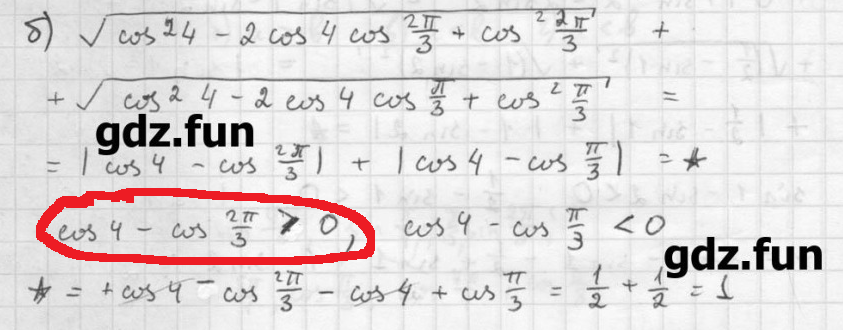 б) √(cos²4 − 2 cos 4 cos 2π/3 + cos² 2π/3) +
+ √(cos² 4 − 2 cos 4 cos π/3 + cos² π/3) =
gdz.fun
= | cos 4 − cos 2π/3 | + | cos 4 − cos π/3 | = *
cos 4 − cos 2π/3 > 0, cos 4 − cos π/3 < 0
gdz.fun
* = + cos 4 − cos 2π/3 − cos 4 + cos π/3 = 1/2 + 1/2 = 1